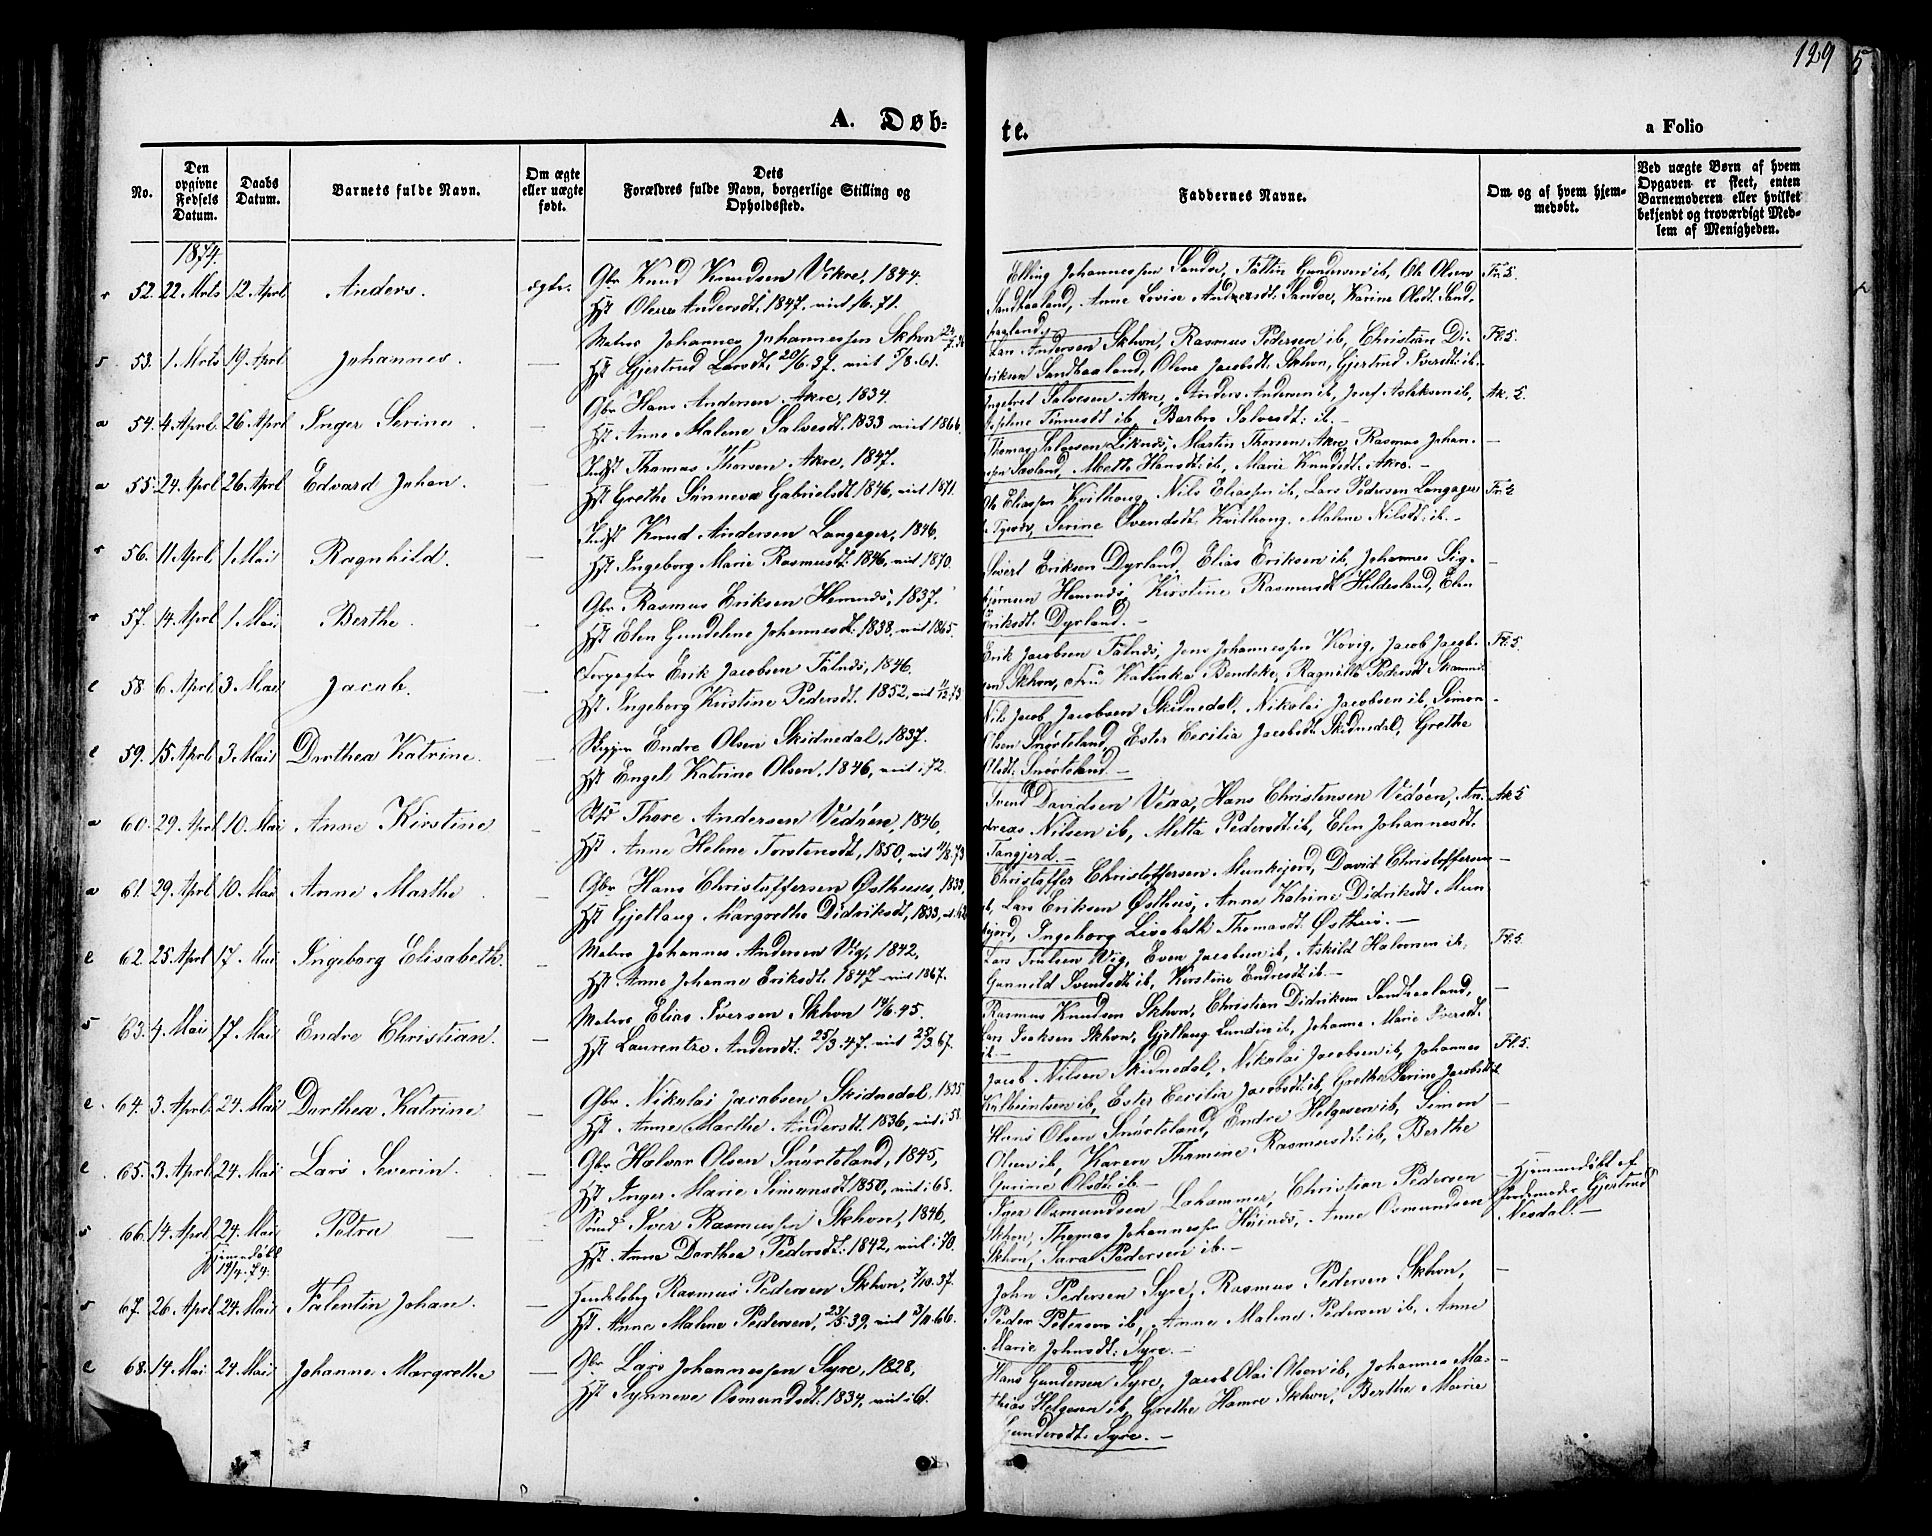 129
5
A. Døb-
te.
a Folio
No.
Den opgivne Fødsels Datum.
Daabs Datum.
Barnets fulde Navn.
Om ægte eller uægte født.
Dets Forældres fulde Navn, borgerlige Stilling og Opholdssted.
Faddernes Navne.
Om og af hvem hjemmedøbt.
Ved uægte Børn af hvem Opgaven er skeet, enten Barnemoderen eller hvilket bekjendt og troværdigt Medlem af Menigheden.
1874.
r 52. 22. Mrts 12. April Anders. ægte.
Gbr Knud Knudsen Vikre, 1844.
Hst Olene Andersdt: 1847. viet 16. 71.
Elling Johannessen Sandve, Tøllin Gundersen ib, Ole Olsen
Sandhaaland, Anne Lovise Andersdt: Sandve, Karine Olsdt: Sand-
haaland.
Fr. 5.
s 53. 1. Mrts 19. April Johannes. —
Matros Johannes Johannessen Skhvn
Hst Gjertrud Larsdt, 20/6. 37. viet 5/8. 61.
Lars Andersen Skhvn, Rasmus Pedersen ib, Christian Di-
driksen Sandhaaland, Olene Jacobsdt: Skhvn, Gjertrud Iversdt: ib.
Fl. 5.
a 54. 4. April. 26. April Inger Serine. —
Gbr Hans Andersen Akre, 1834
Hst Anne Malene Salvesdt. 1833 viet 1866.
Ingebret Salvesen Akre, Anders Andersen ib, Josef Aslaksen ib,
Barbro Salvesdt: ib. —
Ak. 5.
a 55. 24. April 26. April Edvard Johan. —
Indst Thomas Thorsen Akre, 1847.
Hst Grethe Sinneva Gabrielsdt 1846, viet 1871.
Thomas Salvesen Liknes, Martin Thorsen Akre, Rasmus Johan-
Mette Hansdt: ib, Marie Knudsdt: Akre. —
—
r 56. 11. April 1. Mai Ragnhild. —
Indst Knud Andersen Langager, 1846,
Hst Ingeborg Marie Rasmusdt: 1846, viet 1870.
Ole Eliassen Kvilhoug, Nils Eliassen ib, Lars Pedersen Langager
Serine Svendsdt: Kvilhoug, Malene Nilsdt: ib. —
r 57. 14. April 1. Mai Berthe. —
Gbr. Rasmus Eriksen Hemnes, 1837.
Hst Elen Gundelene Johannesdt: 1838, viet 1865.
Sivert Eriksen Dyrland, Elias Eriksen ib, Johannes Sig-
bjørnsen Hemnes, Kirstine Rasmusdt Hildesland, Elen
Eriksdt: Dyrland. —
—
e 58 6. April 3. Mai Jacob. —
Forpagter Erik Jacobsen Falnes, 1846.
Hst. Ingeborg Kirstine Pedersdt. 1852, viet 11/12. 73
Erik Jacobsen Falnes, Jens Johannessen Kovig, Jacob Jacob-
sen Skhvn, Fru Katinka Bendeke, Ragnille Pedersdt:
Fl. 5.
e 59. 15. April 3. Mai Dorthea Katrine. —
Endre Olsen Skidnedal, 1837.
Hst Engel Katrine Olsen, 1846, viet i 72.
Nils Jacob Jacobsen Skidnedal, Nikolai Jacobsen ib, Simon
Olsen Snørteland, Ester Cecilia Jacobsdt: Skidnedal, Grethe
Olsdt: Snørteland. —
-
a 60. 29. April 10. Mai Anne Kirstine —
Thore Andersen Vedøen, 1846,
Hst. Anne Helene Torstensdt, 1850, viet 11/8. 73
Svend Davidsen Veaa, Hans Christensen Vedøen, An-
dreas Nilsen ib, Metta Pedersdt: ib, Elen Johannesdt:
Tangjerd. —
Ak 5
a 61. 29. April 10. Mai Anne Marthe. —
Gbr Hans Christoffersen Østhuus, 1833,
Hst Gjetlaug Margrethe Didriksdt, 1833, vt. 62
Christoffer Christoffersen Munkejord, David Christoffersen
ib, Lars Eriksen Østhus, Anne Katrine Didriksdt: Mun-
kejord, Ingeborg Lisabeth Thomasdt: Østhus. —
—
e 62. 25. April 17. Mai Ingeborg Elisabeth. —
Matros Johannes Andersen Vig, 1842,
Hst. Anne Johanne Eriksdt: 1847 viet 1867.
Lars Trulsen Wig, Even Jacobsen ib, Askild Halvorsen ib,
Gunnild Svendsdt: ib, Kirstine Endresdt: ib. —
Fl. 5.
s 63. 4. Mai 17. Mai Endre Christian. —
Matros Elias Iversen Skhvn 14/6. 45.
Hst Laurentze Andersdt: 25/3. 47. viet 25/3. 67.
Rasmus Knudsen Skhvn, Christian Didriksen Sandhaaland,
Lars Isaksen Skhvn, Gjetlaug Lundin ib, Johanne Marie Iversdt.
ib. —
—
e. 64. 3. April. 24. Mai Dorthea Katrine —
Gbr. Nikolai Jacobsen Skidnedal, 1835
Hst. Anne Marthe Andersdt: 1836, viet i 58
Jacob Nilsen Skidnedal, Nikolai Jacobsen ib, Johannes
Ester Cecilia Jacobsdt: ib, Grethe Serine Jacobsdt:
Fl. 5.
e. 65. 3. April 24. Mai Lars Severin. —
Gbr Halvor Olsen Snørteland, 1845,
Hst Inger Marie Simonsdt: 1850, viet i 68.
Hans Olsen Snørteland, Endre Helgesen ib, Simon
Olsen ib, Karen Thomine Rasmusdt: ib, Berthe
Gurine Olsdt: ib. —
—
s 66. 14. April 24. Mai Petra —
Hjemmedøbt
19/4. 74.
Iver Rasmussen Skhvn, 1846,
Hst. Anne Dorthea Pedersdt: 1842, viet i 70.
Osmundsen Lahammer, Christian Pedersen
Skhvn, Thomas Johannessen Høines, Anne Osmundsen
Skhvn, Sara Pedersen ib. —
Hjemmedøbt af
Jordemoder Gjertrud
Nesdall. —
s 67. 26. April 24. Mai Falentin Johan. —
Handelsbg Rasmus Pedersen Skhvn, 7/10. 37.
Hst. Anne Malene Pedersen, 23/5. 39, viet 3/11. 66.
John Pedersen Syre, Rasmus Pedersen Skhvn,
Peder Petersen ib, Anne Malene Pedersen ib, Anne
Marie Johnsdt: Syre. —
—
e 68. 14. Mai 24. Mai Johanne Margrethe —
Gbr Lars Johannessen Syre, 1828,
Hst Synneve Osmundsdt: 1834, viet i 61.
Hans Gundersen Syre, Jacob Olai Olsen ib, Johannes Ma-
thias Helgesen ib, Grethe Hamre Skhvn, Berthe Marie
Gundersdt: Syre. —
—